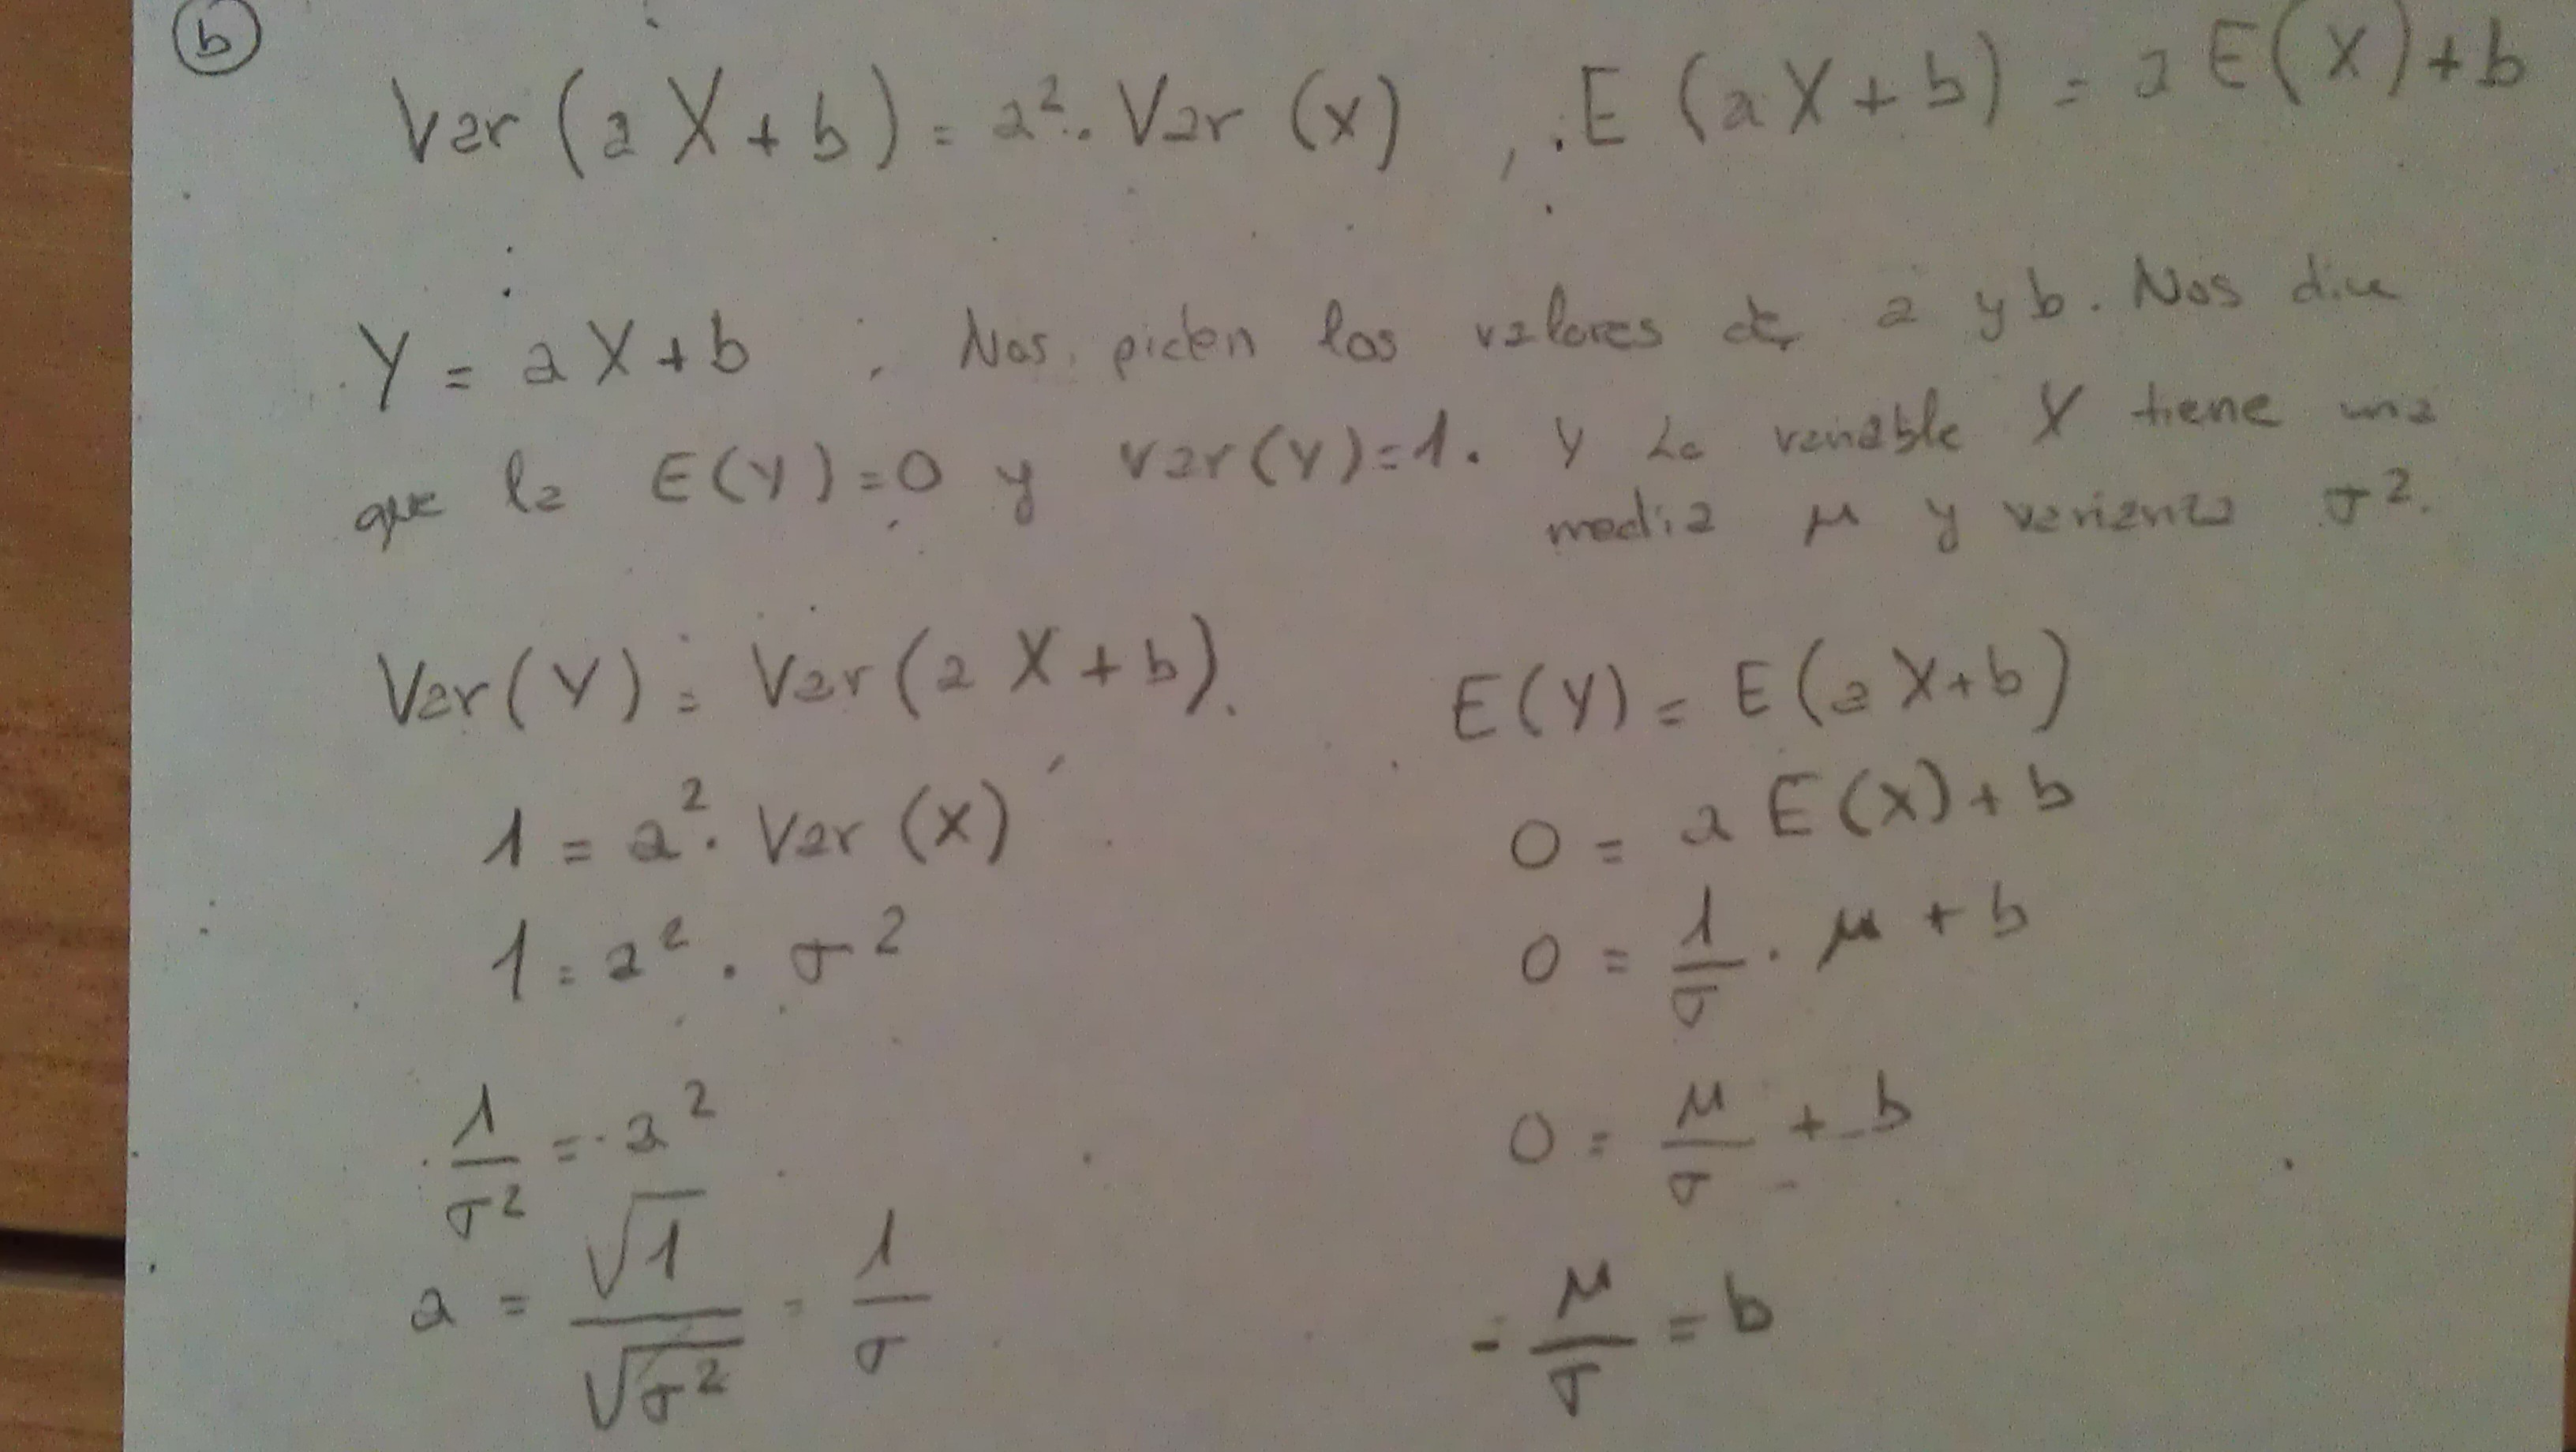 b
Var (aX + b) = a². Var (x) , E (aX + b) = a E(X) + b
Y = aX + b , Nos piden los valores de a y b. Nos dice
que la E(Y)=0 y Var(Y)=1. Y La variable X tiene una
media μ y varianza σ².
Var(Y) = Var(aX + b).
1 = a². Var (X)
1 = a² . σ²
1/σ² = a²
a = √1/√σ² = 1/σ
E(Y) = E(aX+b)
0 = a E(X) + b
0 = 1/σ . μ + b
0 = μ/σ + b
- μ/σ = b